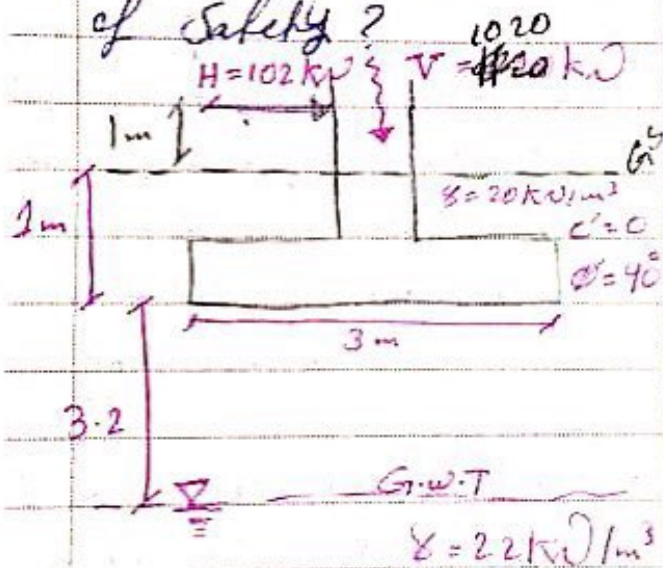 of Safety ?
1020
H=102 kN V = kN
1m
G.S
γ=20KN/m³
1m
c'=0
φ'=40°
3m
3.2
G.W.T
γ=22kN/m³